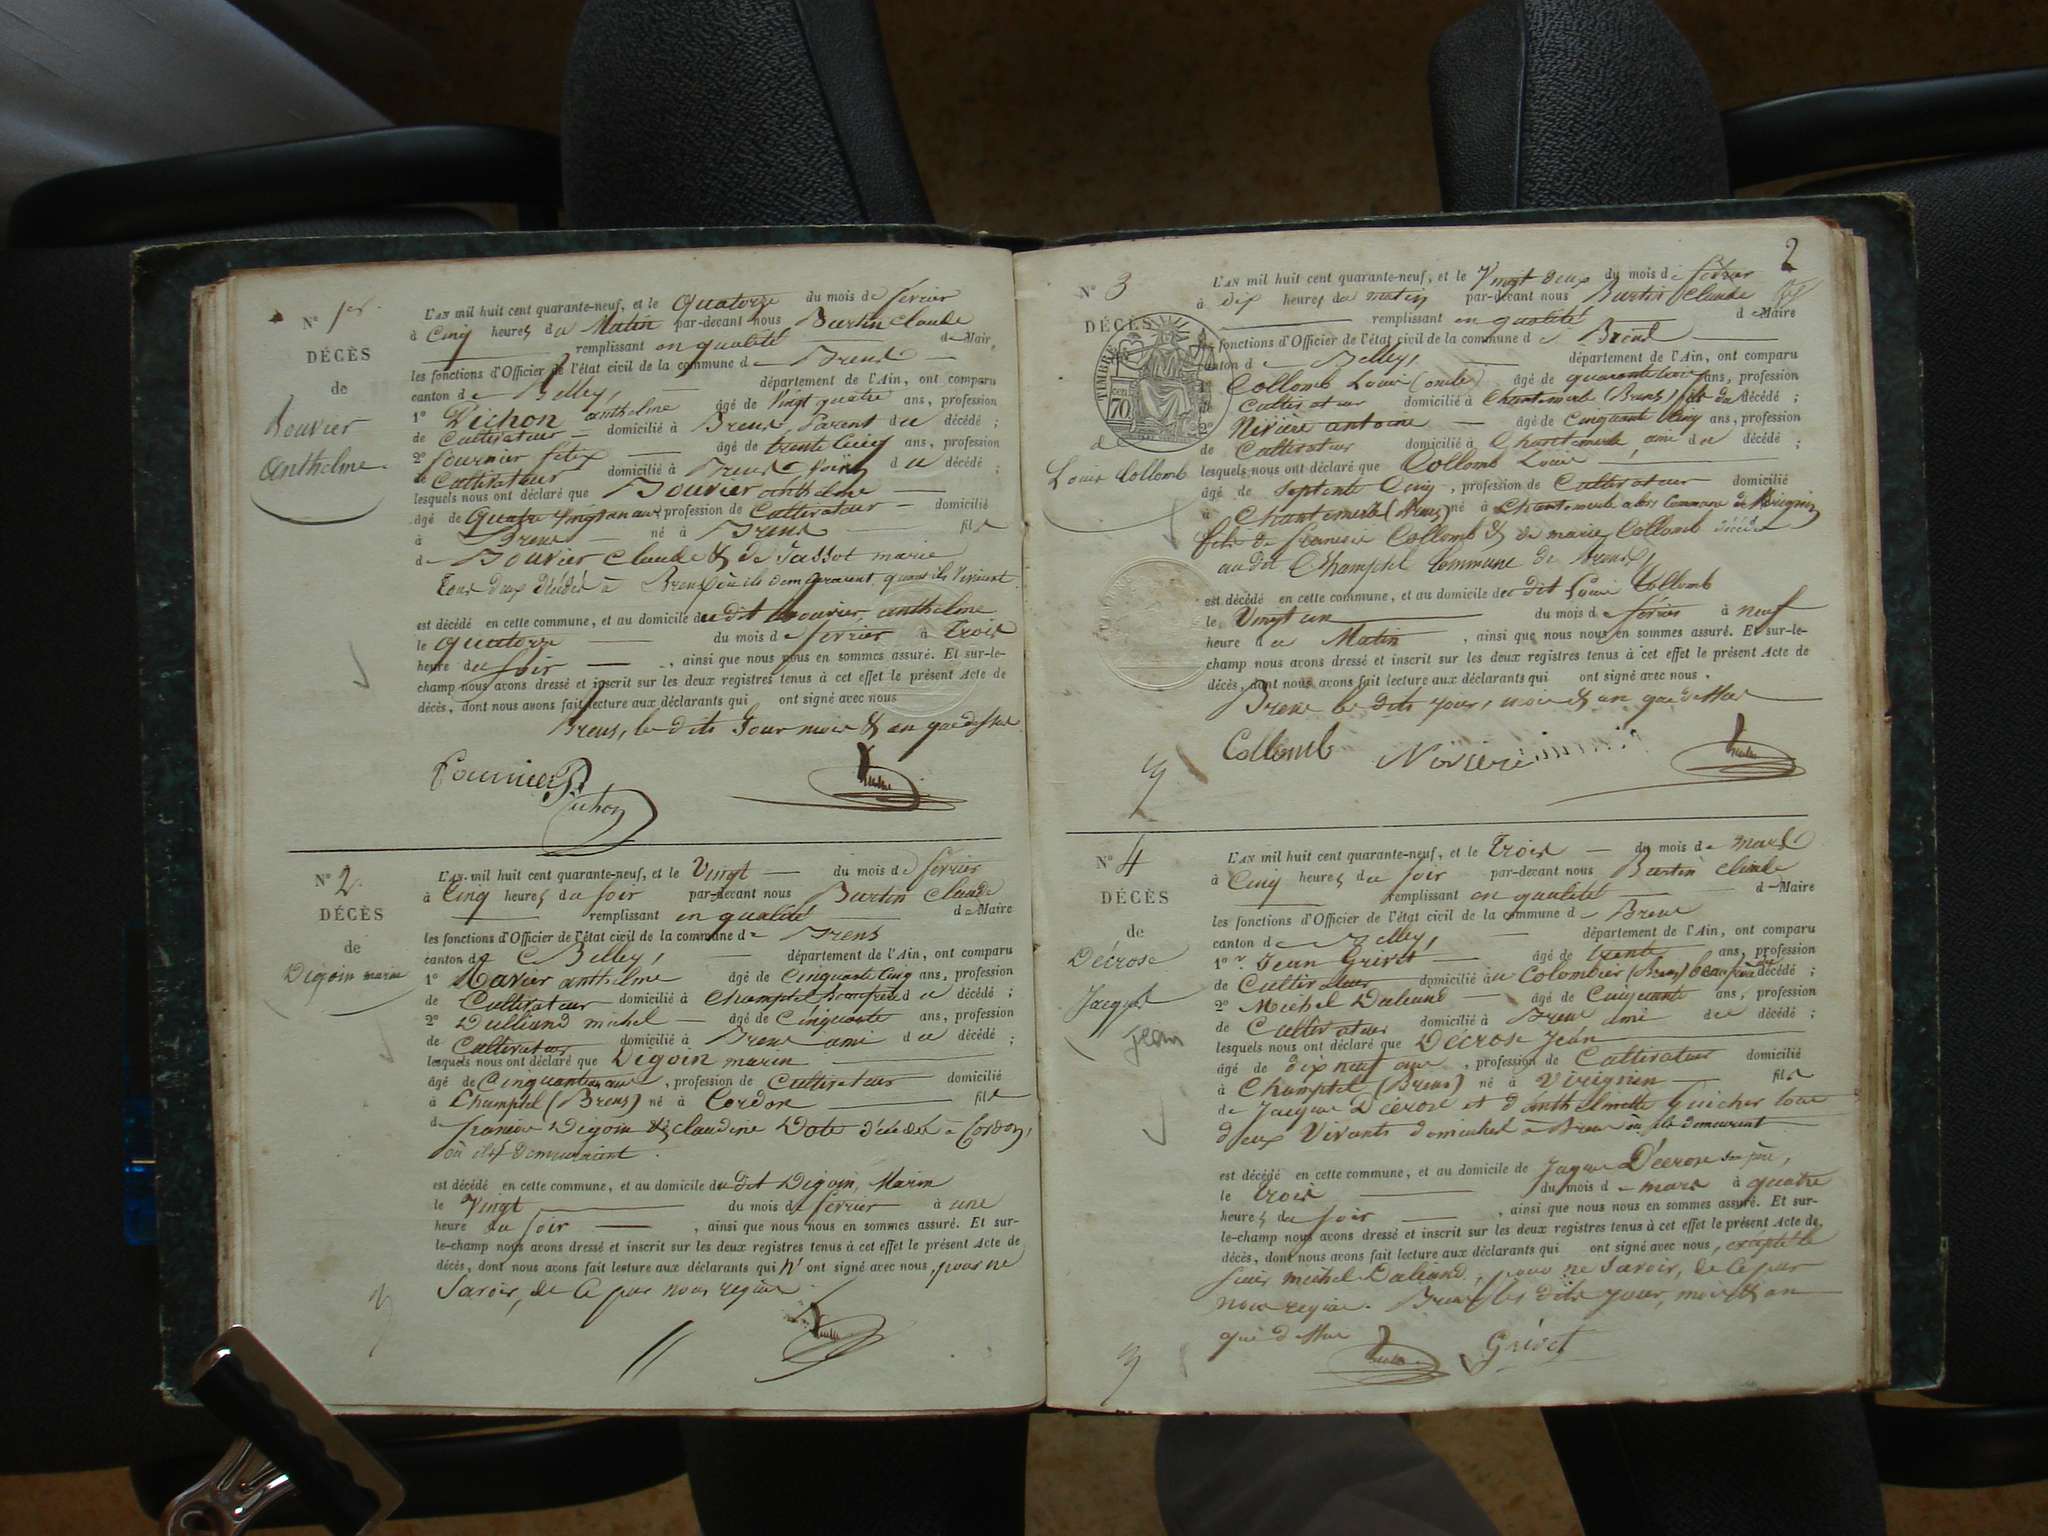 N° 1er
DÉCÈS
de
Bouvier
Anthelme
L'AN mil huit cent quarante-neuf, et le quatorze du mois de février
à Cinq heures du Matin par-devant nous Burtin Claude
remplissant en qualité de Maire
les fonctions d'Officier de l'état civil de la commune de Brens
canton de Belley, département de l'Ain, ont comparu
1° Pichon anthelme âgé de Vingt quatre ans, profession
de Cultivateur domicilié à Brens, Parent du décédé ;
2° fournier félix âgé de trente Cinq ans, profession
de Cultivateur domicilié à Brens du décédé ;
lesquels nous ont déclaré que Bouvier anthelme
âgé de Quatre Vingt un ans profession de Cultivateur domicilié
à Brens né à Brens fils
de Bouvier Claude & de Tassot marie
Tous deux décédés à Brens où ils demeuraient, quand ils Vivaient
est décédé en cette commune, et au domicile du dit Bouvier anthelme
le quatorze du mois de février à Trois
heure du soir , ainsi que nous nous en sommes assuré. Et sur-le-
champ nous avons dressé et inscrit sur les deux registres tenus à cet effet le présent Acte de
décès, dont nous avons fait lecture aux déclarants qui ont signé avec nous
Brens, les dits Jour mois & an que dessus
Fournier
Pichon
N° 2
DÉCÈS
de
Digoin marin
L'AN mil huit cent quarante-neuf, et le Vingt du mois de février
à Cinq heures du soir par-devant nous Burtin Claude
remplissant en qualité de Maire
les fonctions d'Officier de l'état civil de la commune de Brens
canton de Belley, département de l'Ain, ont comparu
1° anthelme âgé de Cinquante Cinq ans, profession
de Cultivateur domicilié à Champtel beau frère du décédé ;
2° Dulliand michel âgé de Cinquante ans, profession
de Cultivateur domicilié à Brens ami du décédé ;
lesquels nous ont déclaré que Digoin marin
âgé de Cinquante un ans, profession de Cultivateur domicilié
à Champtel (Brens) né à Cordon fils
de françois Digoin & claudine Dote décédés à Cordon,
où ils Demeuraient.
est décédé en cette commune, et au domicile du dit Digoin, Marin
le Vingt du mois de février à une
heure du soir , ainsi que nous nous en sommes assuré. Et sur-
le-champ nous avons dressé et inscrit sur les deux registres tenus à cet effet le présent Acte de
décès, dont nous avons fait lecture aux déclarants qui n' ont signé avec nous, pour ne
Savoir, de Ce par nous requis
2
N° 3
DÉCÈS
TIMBRE
70
de
Louis Collomb
L'AN mil huit cent quarante-neuf, et le Vingt deux du mois de février
à dix heures du matin par-devant nous Burtin Claude
remplissant en qualité de Maire
fonctions d'Officier de l'état civil de la commune de Brens
canton de Belley, département de l'Ain, ont comparu
Collomb Louis âgé de quarante trois ans, profession
de Cultivateur domicilié à Chantemerle (Brens) fils du décédé ;
2° Nivière antoine âgé de Cinquante Cinq ans, profession
de Cultivateur domicilié à Chantemerle, ami du décédé ;
lesquels nous ont déclaré que Collomb Louis
âgé de septente Cinq, profession de Cultivateur domicilié
à Chantemerle (Brens) né à Chantemerle alors Commune de Virignin
fils de francois Collomb & de marie Collomb décédé
au dit Champtel Commune de Brens,
est décédé en cette commune, et au domicile du dit Louis Collomb
le Vingt un du mois de février à neuf
heure du Matin , ainsi que nous nous en sommes assuré. Et sur-le-
champ nous avons dressé et inscrit sur les deux registres tenus à cet effet le présent Acte de
décès, dont nous avons fait lecture aux déclarants qui ont signé avec nous.
Brens les dits jour, mois & an que dessus
Collomb Nivière
N° 4
DÉCÈS
de
Décrose
Jean
L'AN mil huit cent quarante-neuf, et le Trois du mois de mars
à Cinq heures du soir par-devant nous Burtin Claude
remplissant en qualité de Maire
les fonctions d'Officier de l'état civil de la commune de Brens
canton de Belley, département de l'Ain, ont comparu
1° Jean Grivet âgé de trente ans, profession
de Cultivateur domicilié au Colombier (Brens) beau frère du décédé ;
2° Michel Daliand âgé de Cinquante ans, profession
de Cultivateur domicilié à Brens ami du décédé ;
lesquels nous ont déclaré que Décrose Jean
âgé de dix neuf ans, profession de Cultivateur domicilié
à Champtel (Brens) né à Virignin fils
de Jacques Décrose et d'anthelmette Guicher tous
deux Vivants domiciliés à Brens où ils demeurent
est décédé en cette commune, et au domicile de Jaques Décrose son père,
le trois du mois de mars à quatre
heures du soir , ainsi que nous nous en sommes assuré. Et sur-
le-champ nous avons dressé et inscrit sur les deux registres tenus à cet effet le présent Acte de
décès, dont nous avons fait lecture aux déclarants qui ont signé avec nous, excepté le
sieur michel Daliand, pour ne Savoir, de Ce par
nous requis. Brens les dits jour, mois & an
que dessus
Grivet